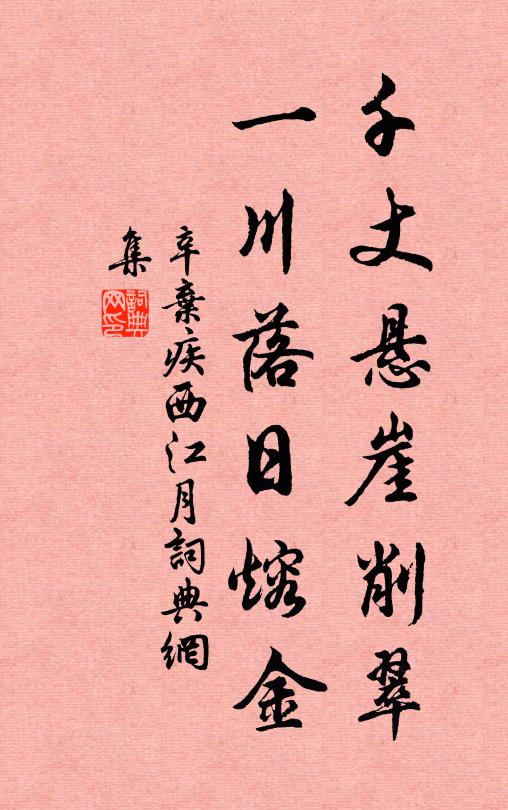 千丈悬崖削翠
一川落日熔金
辛棄疾西江月詞典網
集
詞典
网印